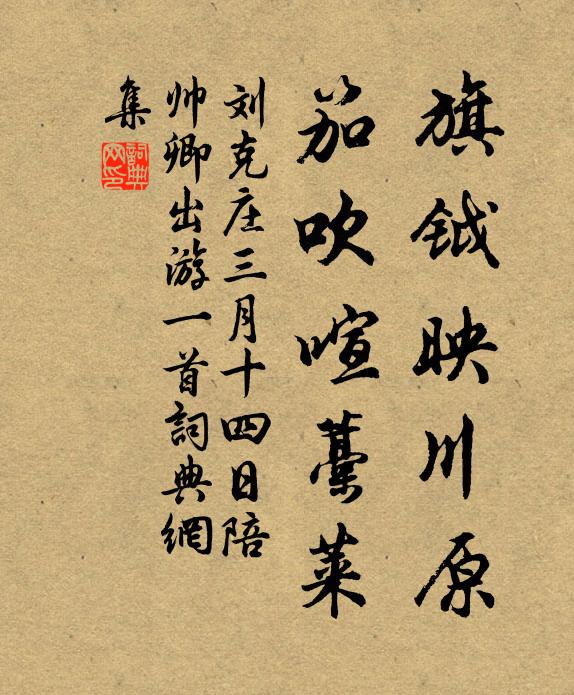 旗钺映川原
笳吹喧藁莱
刘克庄三月十四日陪
帅卿出游一首词典網
集
詞典網印